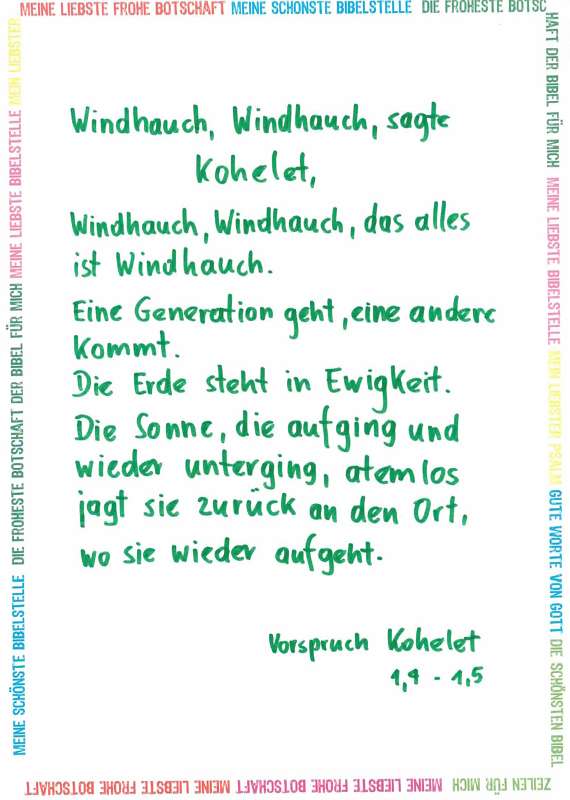 MEINE LIEBSTE FROHE BOTSCHAFT MEINE SCHÖNSTE BIBELSTELLE DIE FROHESTE BOTSC
HAFT DER BIBEL FÜR MICH MEINE LIEBSTE BIBELSTELLE MEIN LIEBSTER PSALM GUTE WORTE VON GOTT DIE SCHÖNSTEN BIBEL
ZEILEN FÜR MICH MEINE LIEBSTE BOTSCHAFT MEINE LIEBSTE FROHE BOTSCHAFT
MEINE SCHÖNSTE BIBELSTELLE DIE FROHESTE BOTSCHAFT DER BIBEL FÜR MICH MEINE LIEBSTE BIBELSTELLE MEIN LIEBSTER
Windhauch, Windhauch, sagte
Kohelet,
Windhauch, Windhauch, das alles
ist Windhauch.
Eine Generation geht, eine andere
kommt.
Die Erde steht in Ewigkeit.
Die Sonne, die aufging und
wieder unterging, atemlos
jagt sie zurück an den Ort,
wo sie wieder aufgeht.
Vorspruch Kohelet
1,4 - 1,5